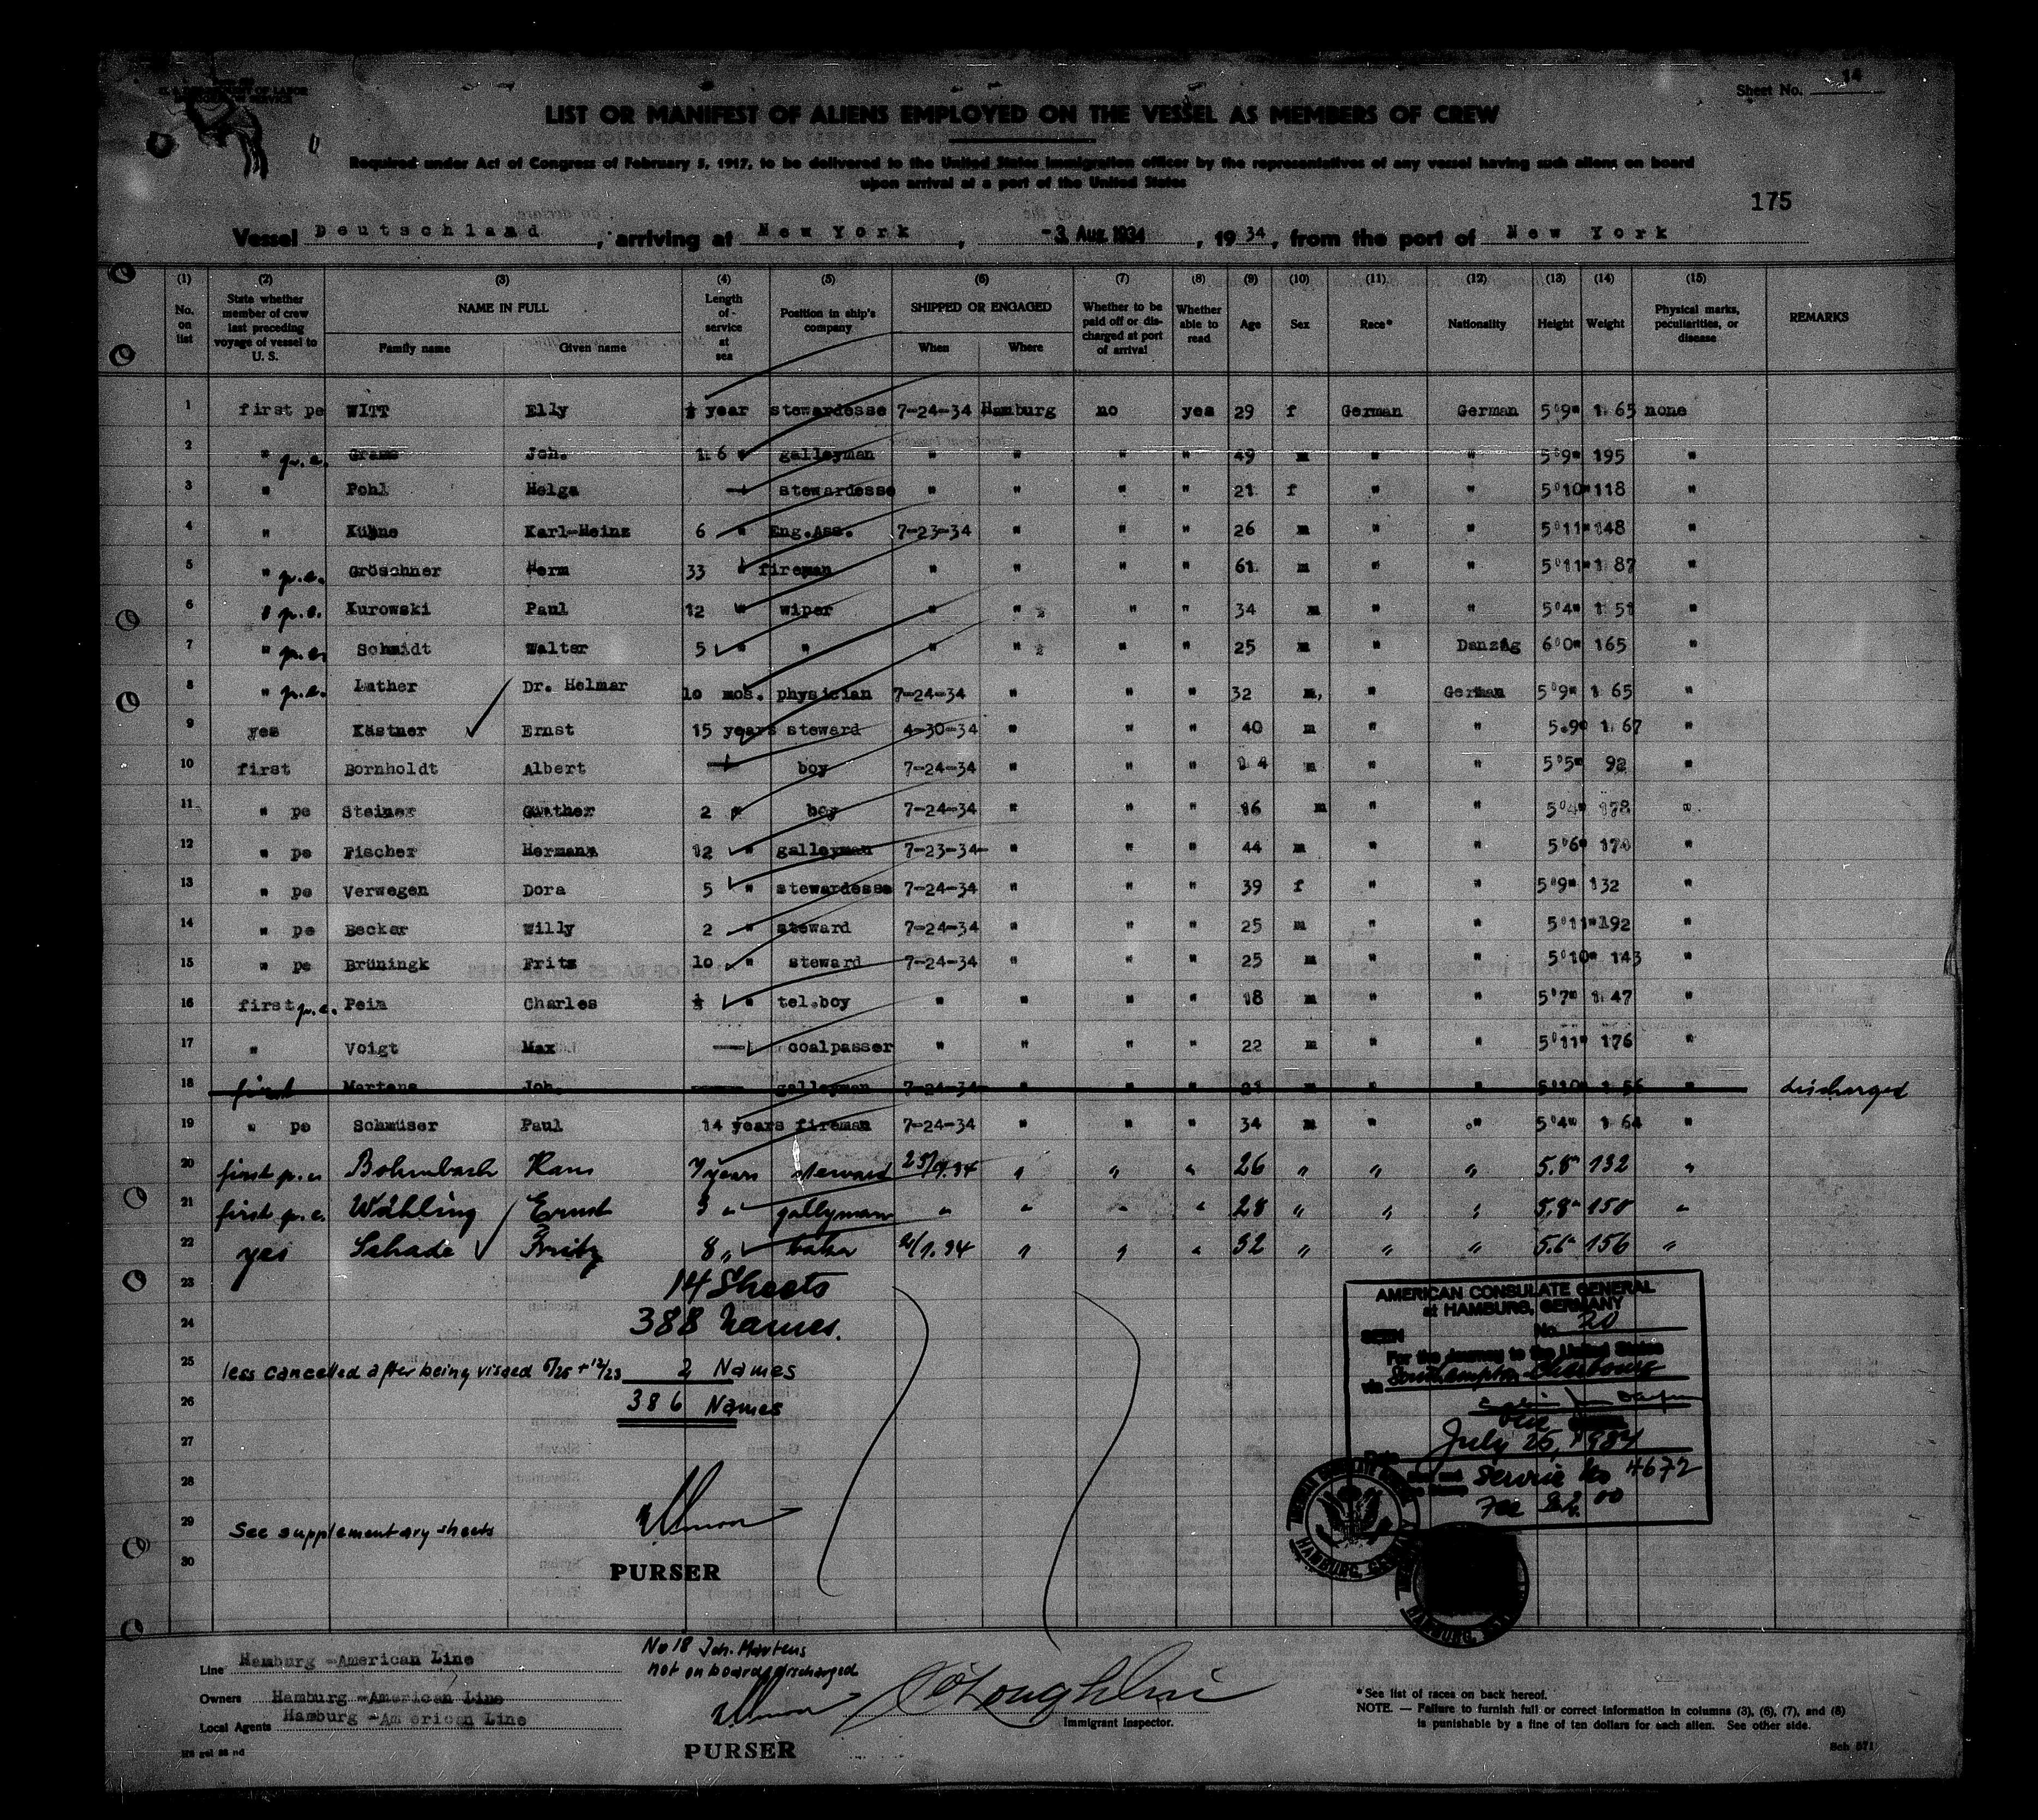 U. S. DEPARTMENT OF LABOR
Sheet No. 14
LIST OR MANIFEST OF ALIENS EMPLOYED ON THE VESSEL AS MEMBERS OF CREW
Required under Act of Congress of February 5, 1917, to be delivered to the United States Immigration officer by the representatives of any vessel having such aliens on board
upon arrival at a port of the United States
175
Vessel Deutschland, arriving at New York, -3 Aug 1934, 1934, from the port of New York
(1) (2) (3) (4) (5) (6) (7) (8) (9) (10) (11) (12) (13) (14) (15)
No. on list State whether member of crew last preceding voyage of vessel to U. S. NAME IN FULL Family name Given name Length of service at sea Position in ship's company SHIPPED OR ENGAGED When Where Whether to be paid off or discharged at port of arrival Whether able to read Age Sex Race* Nationality Height Weight Physical marks, peculiarities, or disease REMARKS
1 first pe WITT Elly ½ year stewardesse 7-24-34 Hamburg no yes 29 f German German 5°9" 165 none
2 " p.e. Joh. 16 " galleyman " " " " 49 m " " 5°9" 195 "
3 " Pohl Helga — stewardesse " " " " 21 f " " 5°10" 118 "
4 " Kühne Karl-Heinz 6 " Eng.Ass. 7-23-34 " " " 26 m " " 5°11" 148 "
5 " p.e. Gröschner Herm 33 " fireman " " " " 61 m " " 5°11" 187 "
6 " p.e. Kurowski Paul 12 " wiper " " " " 34 m " " 5°4" 151 "
7 " p.e. Schmidt Walter 5 " " " " " " 25 m " Danzig 6°0" 165 "
8 " p.e. Luther Dr. Helmar 10 mos. physician 7-24-34 " " " 32 m, " German 5°9" 165 "
9 yes Kästner Ernst 15 years steward 4-30-34 " " " 40 m " " 5.9" 167 "
10 first Bornholdt Albert — boy 7-24-34 " " " 14 m " " 5°5" 92 "
11 " pe Steiner Günther 2 " boy 7-24-34 " " " 16 m " " 5°4" "
12 " pe Fischer Hermann 12 " galleyman 7-23-34 " " " 44 m " " 5°6" "
13 " pe Verwegen Dora 5 " stewardesse 7-24-34 " " " 39 f " " 5°9" 132 "
14 " pe Becker Willy 2 " steward 7-24-34 " " " 25 m " " 5°11" 192
15 " pe Brüningk Fritz 10 " steward 7-24-34 " " " 25 m " " 5°10" 143 "
16 first p.e. Pein Charles ½ " tel.boy " " " " 18 m " " 5°7" 147 "
17 " Voigt Max — coalpasser " " " " 22 m " " 5°11" 176 "
18 first Martens Joh. — galleyman 7-24-34 " " " 21 m " " 5°10" 156 " discharged
19 " pe Schmüser Paul 14 years fireman 7-24-34 " " " 34 m " " 5°4" 164 "
20 first p.e. Bohmbach Hans 7 years steward " " " 26 " " " 5.8" 132 "
21 first p.e. Wähling Ernst 3 " gallyman " " " " 28 " " " 5.8" 150 "
22 yes Schade Fritz 8 " baker " " " 32 " " " 5.6" 156 "
23 14 Sheets
24 388 Names.
25 less cancelled after being visaed 5/25 + 12/23 2 Names
26 386 Names
27
28
29 See supplementary sheets
30
PURSER
AMERICAN CONSULATE GENERAL
at HAMBURG, GERMANY
SEEN No. 20
For the journey to the United States
via Southampton Cherbourg
Date July 25, 1934
Service No 4672
No 18 Joh. Martens
not on board discharged
Line Hamburg-American Line
Owners Hamburg-American Line
Local Agents Hamburg-American Line
PURSER
Immigrant Inspector.
*See list of races on back hereof.
NOTE. — Failure to furnish full or correct information in columns (3), (6), (7), and (8)
is punishable by a fine of ten dollars for each alien. See other side.
Sch 571